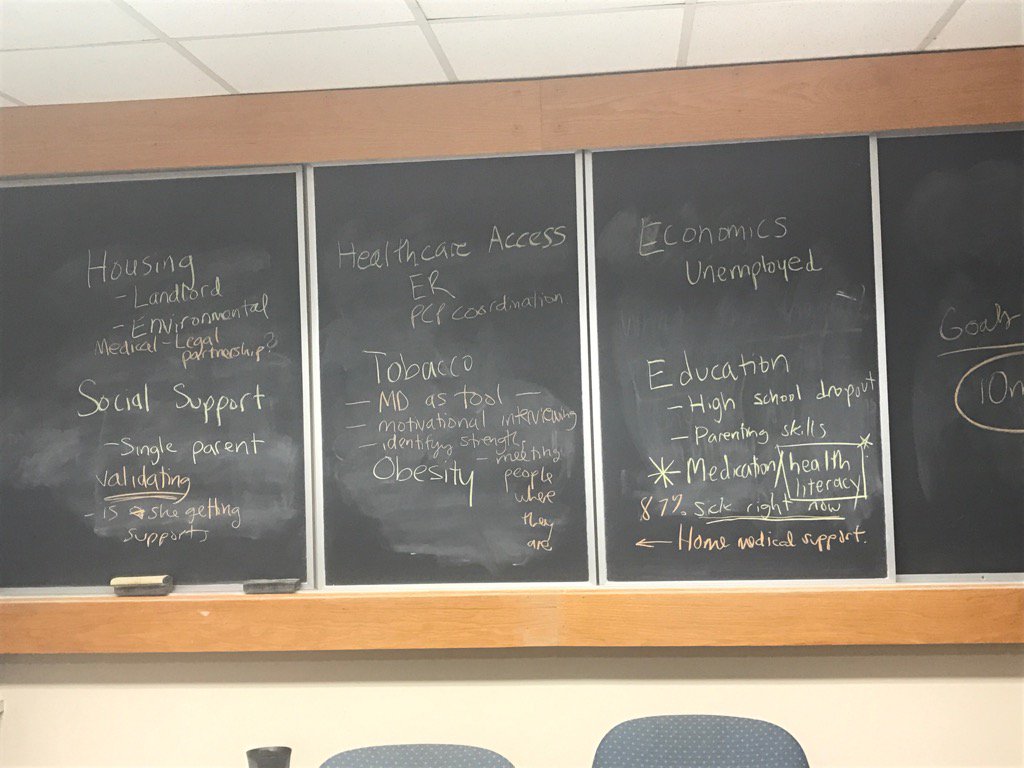 Housing
- Landlord
- Environmental
Medical-Legal
partnership?
Social Support
- Single parent
validating
- is she getting
supports
Healthcare Access
ER
PCP coordination
Tobacco
- MD as tool -
- motivational interviewing
- identifying strengths
- meeting
people
where
they
are
Obesity
Economics
Unemployed
Education
- High school dropout
- Parenting skills
* Medication/health
literacy
87% sick right now
← Home medical support.
Goals